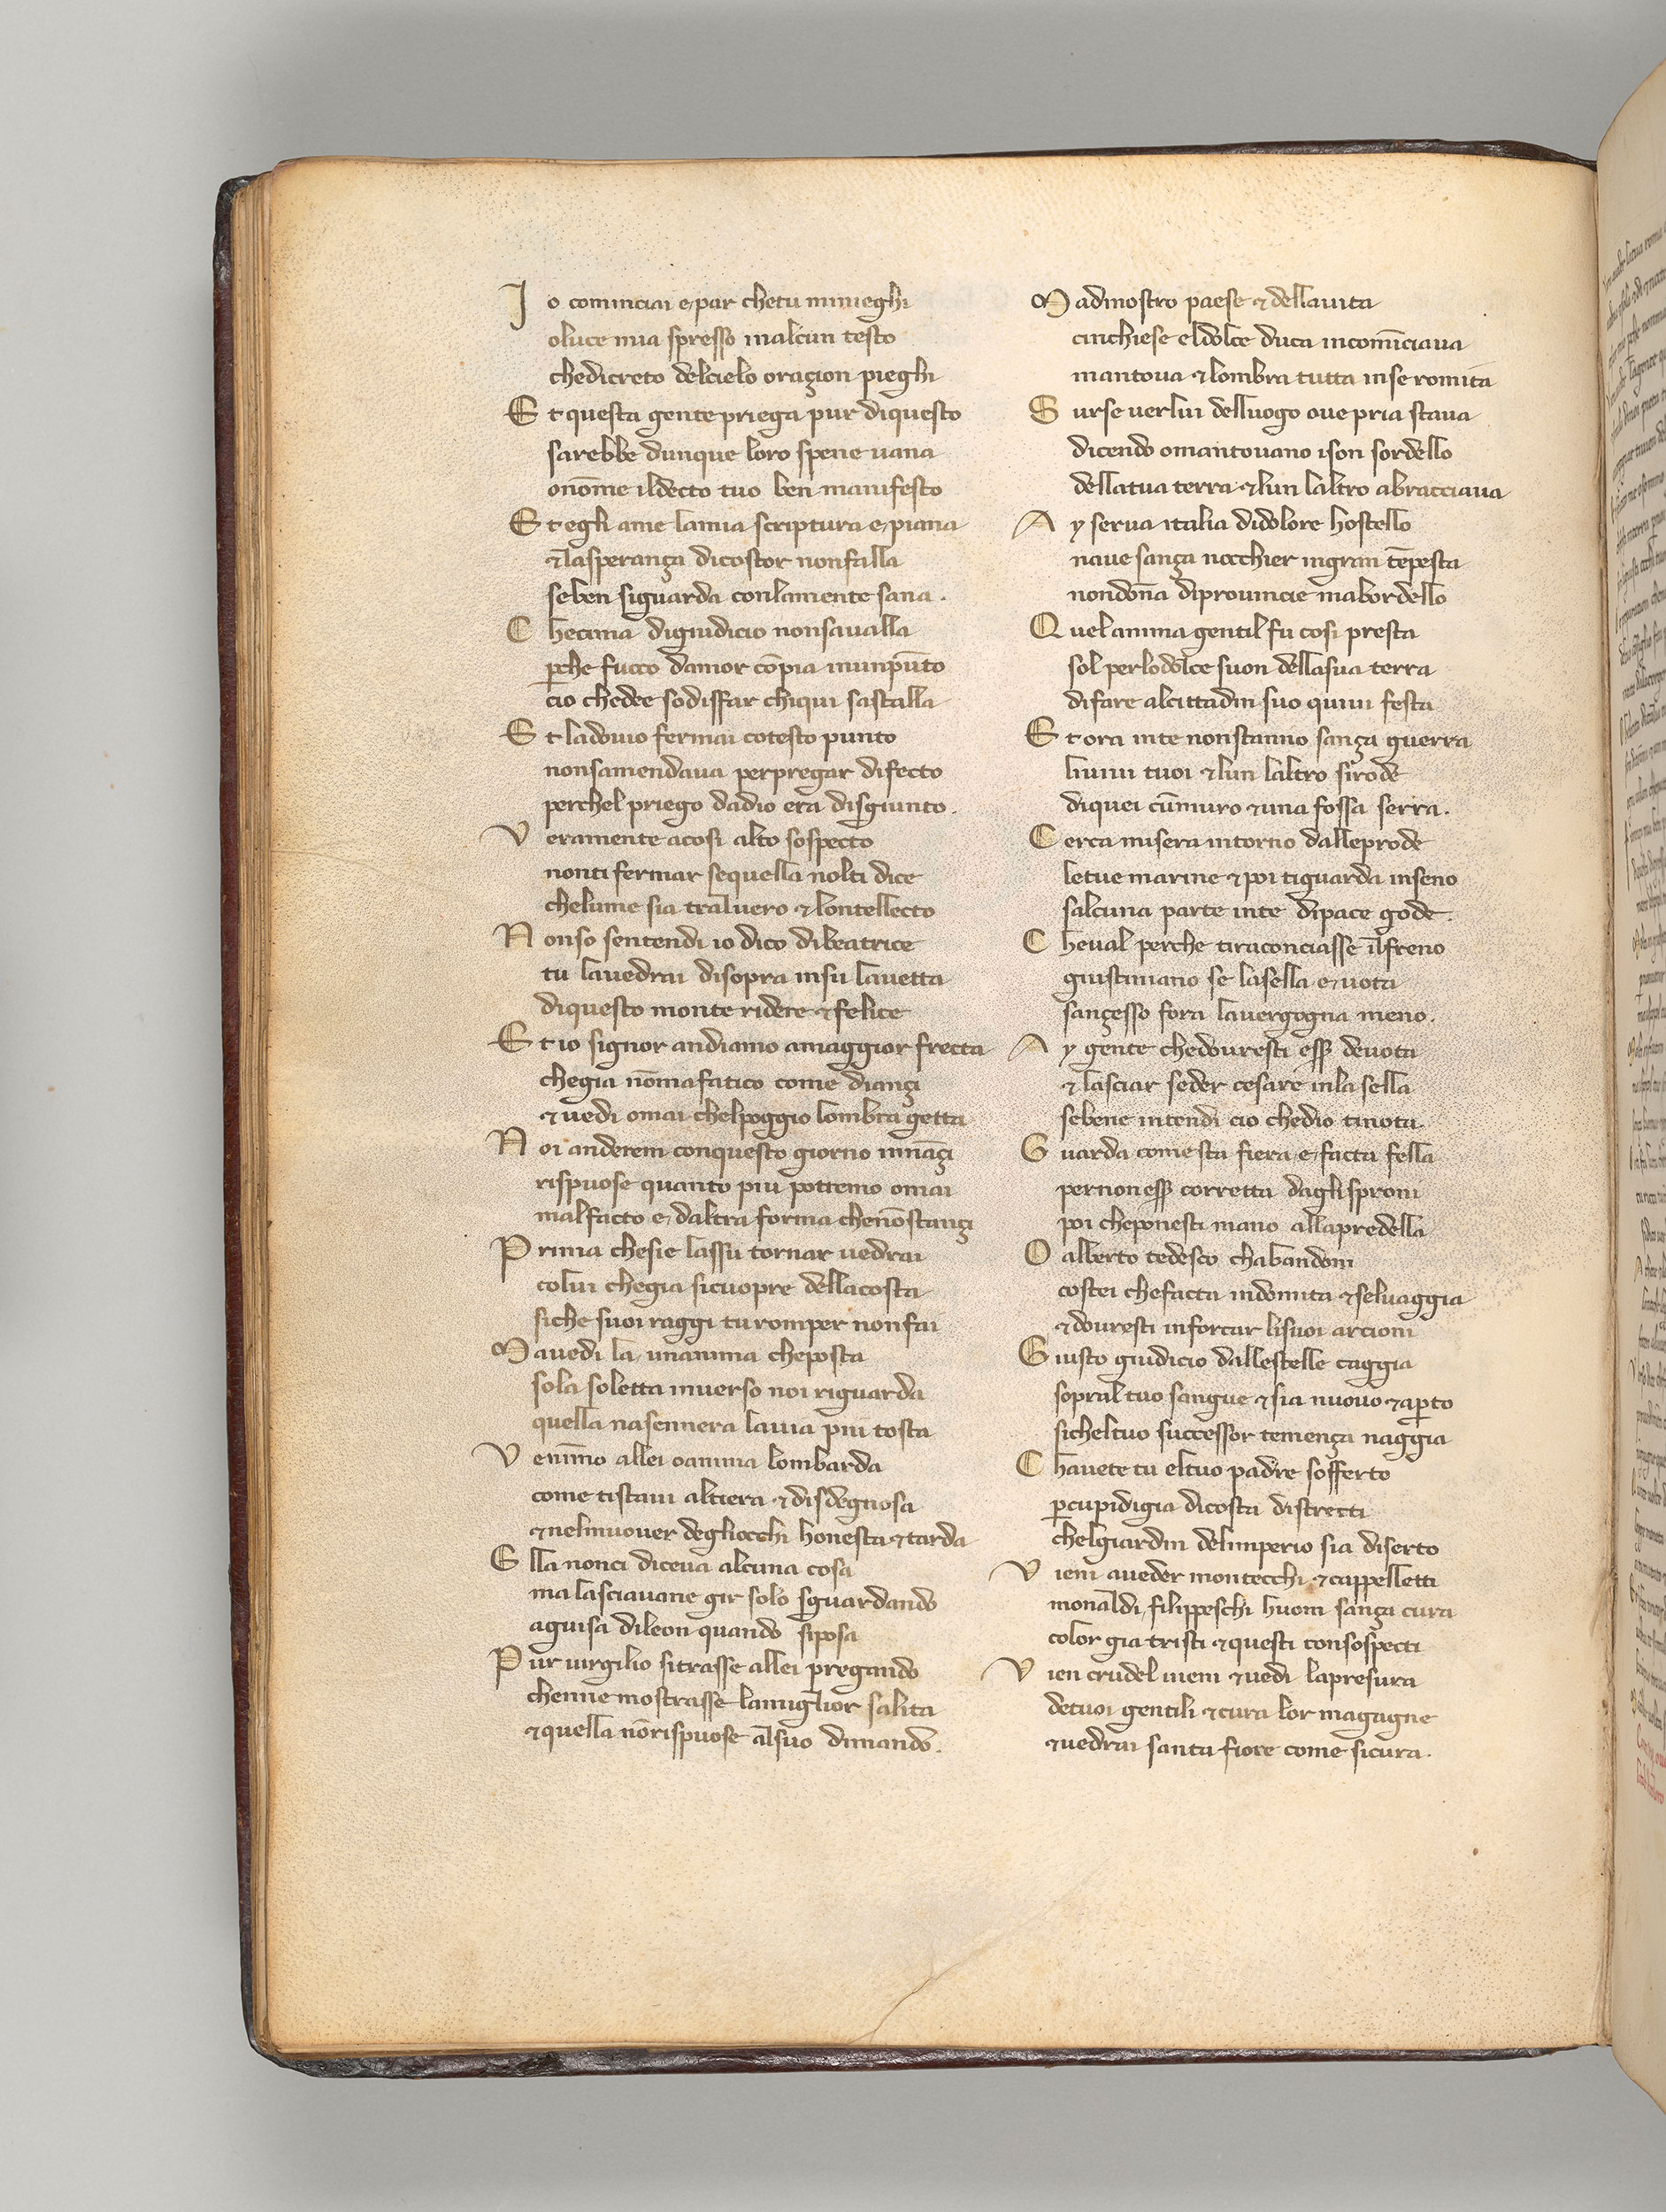 Io cominciai e par chetu minieghi
oluce mia spresso inalcun testo
chedicreto delcielo oraçion pieghi
Et questa gente priega pur diquesto
sarebbe dunque loro spene uana
onōme ildecto tuo ben manifesto
Et egli ame lamia scriptura e piana
⁊ lasperança dicostor nonfalla
seben siguarda conlamente sana.
Checima digiudicio nonsaualla
ꝑche fuoco damor cōpia inunpūto
cio chedee sodisfar chiqui sastalla
Et ladouio fermai cotesto punto
nonsamendaua perpregar difecto
perchel priego dadio era disgiunto.
Veramente acosi alto sospecto
nonti fermar sequella nolti dice
chelume sia traluero ⁊ lontellecto
Nonso sentendi io dico dibeatrice
tu lauedrai disopra insu lauetta
diquesto monte ridere ⁊ felice
Et io signor andiamo amaggior frecta
chegia nōmafatico come diançi
⁊ uedi omai chelpoggio lombra getta
Noi anderem conquesto giorno innāçi
rispuose quanto piu potremo omai
malfacto e daltra forma chenōstançi
Prima chesie lassu tornar uedrai
colui chegia sicuopre dellacosta
siche suoi raggi tu romper nonfai
Mauedi la unanima cheposta
sola soletta inuerso noi riguarda
quella nasennera lauia piu tosta
Venīmo allei oanima lombarda
come tistaui altiera ⁊ disdegnosa
⁊ nelmuouer degliocchi honesta ⁊ tarda
Ella nonci diceua alcuna cosa
ma lasciauane gir solo sguardando
aguisa dileon quando siposa
Pur uirgilio sitrasse allei pregando
chenne mostrasse lamiglior salita
⁊ quella nōrispuose alsuo dimando.
Madinostro paese ⁊ dellauita
cinchiese eldolce duca incomīciaua
mantoua ⁊ lombra tutta inse romita
Surse uerlui delluogo oue pria staua
dicendo omantouano ison sordello
dellatua terra ⁊ lun laltro abracciaua
Ay serua italia didolore hostello
naue sança nocchier ingran tēpesta
nondōna diprouincie mabordello
Quelanima gentil fu cosi presta
sol perlodolce suon dellasua terra
difare alcittadin suo quiui festa
Et ora inte nonstanno sança guerra
liuiui tuoi ⁊ lun laltro sirode
diquei cūmuro ⁊ una fossa serra.
Cerca misera intorno dalleprode
letue marine ⁊ poi tiguarda inseno
salcuna parte inte dipace gode.
Cheual perche tiraconciasse ilfreno
giustiniano se lasella e uota
sançesso fora lauergogna meno.
Ay gente chedouresti esser deuota
⁊ lasciar seder cesare inla sella
sebene intendi cio chedio tinota
Guarda comesta fiera e facta fella
pernonesser corretta dagli sproni
poi cheponesti mano allapredella
O alberto tedesco chabandoni
costei chefacta indomita ⁊ seluaggia
⁊ douresti inforcar lisuoi arcioni
Giusto giudicio dallestelle caggia
sopral tuo sangue ⁊ sia nuouo ⁊ aꝑto
sicheltuo successor temença naggia
Chauete tu eltuo padre sofferto
ꝑcupidigia dicosta distretti
chelgiardin delimperio sia diserto
Vieni aueder montecchi ⁊ cappelletti
monaldi filippeschi huom sança cura
color gia tristi ⁊ questi consospecti
Vien crudel uieni ⁊ uedi lapresura
detuoi gentili ⁊ cura lor magagne
⁊ uedrai santa fiore come sicura.